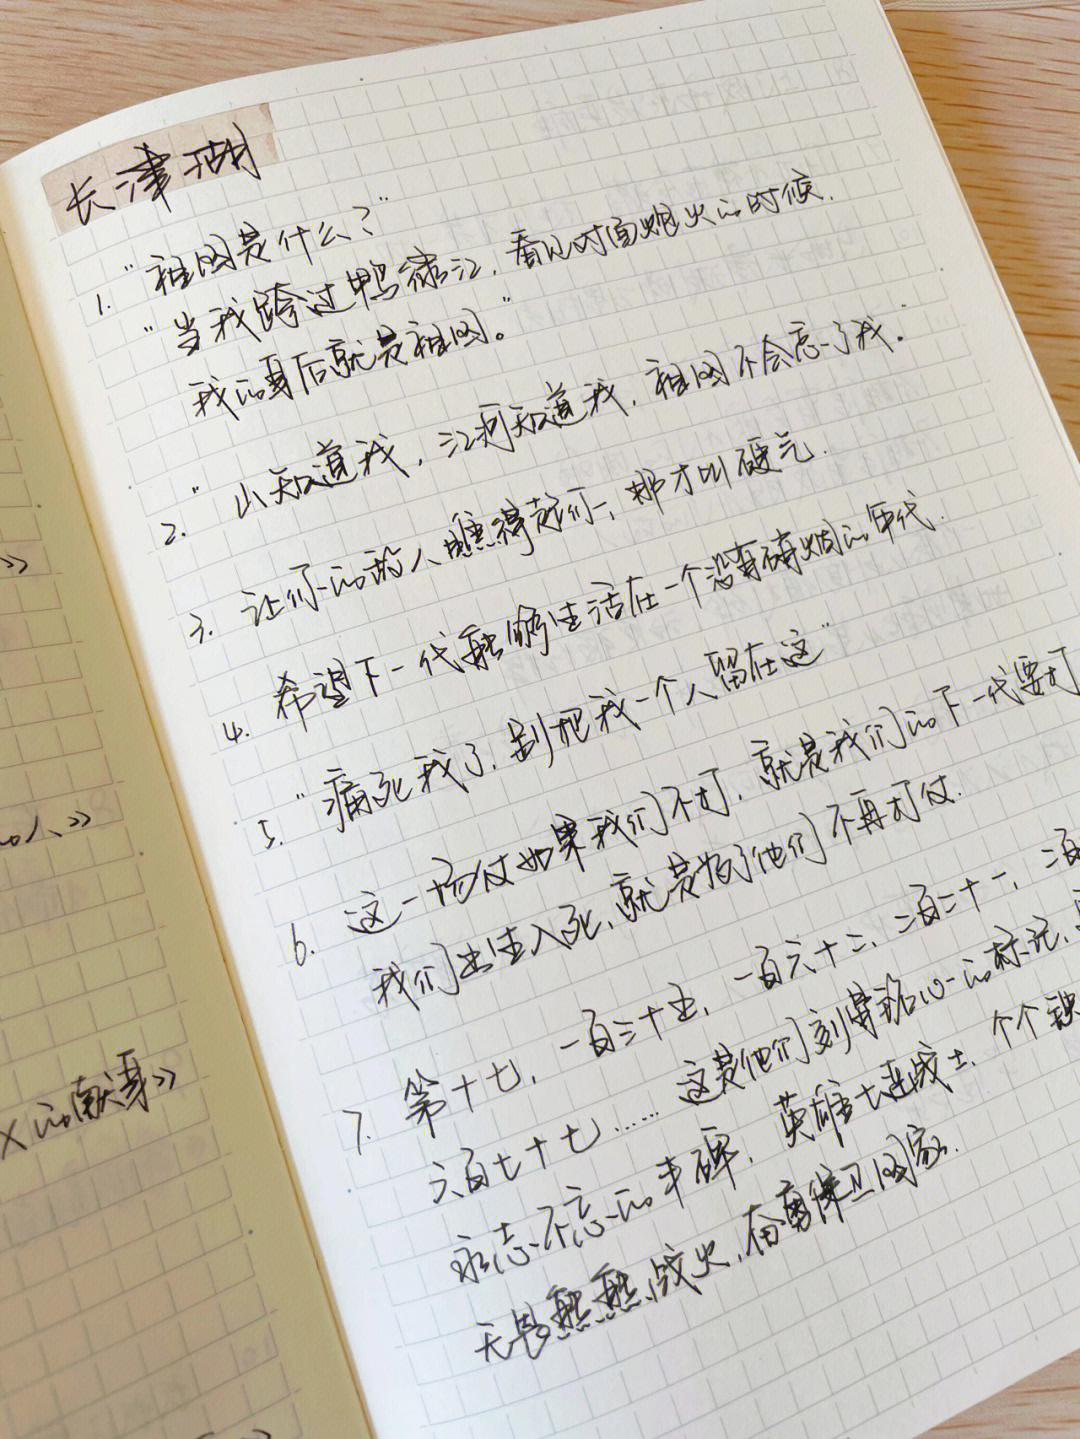 长津湖
1. "祖国是什么？"
"当我跨过鸭绿江，看见对面炮火的时候，
我的身后就是祖国。"
2. "山知道我，江河知道我，祖国不会忘了我。"
3. 让你的敌人瞧得起你，那才叫硬气.
4. 希望下一代能够生活在一个没有硝烟的年代.
5. "痛死我了，别把我一个人留在这"
6. 这一场仗如果我们不打，就是我们的下一代要打
我们出生入死，就是为了他们不再打仗.
7. 第十七，一百三十五，一百六十二，二百二十一，二百
六百七十七……这是他们刻骨铭心的标记，
永志不忘的丰碑，英雄七连战士，个个
无畏熊熊战火，奋勇保卫国家.
的献身》